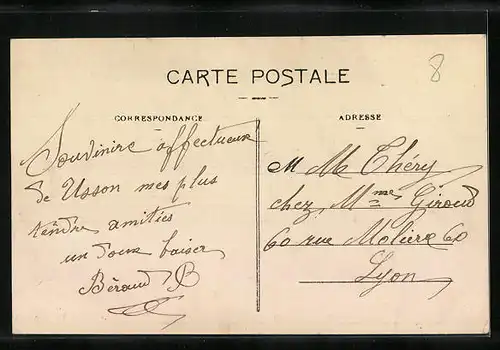 8
CARTE POSTALE
CORRESPONDANCE
Souvinire affectueux
de Usson mes plus
tendre amitiés
un doux baiser
Béraud B
ADRESSE
M Mh Théry
chez Mme Giroud
60 rue Moliere 60
Lyon